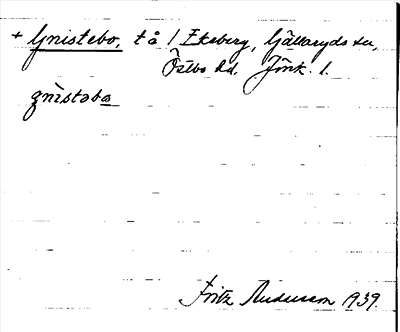 + Gnistebo, t å / Ekeberg, Gällaryds sn,
Östbo hd, Jönk. l.
gnistəbo
Fritz Andersson 1939.